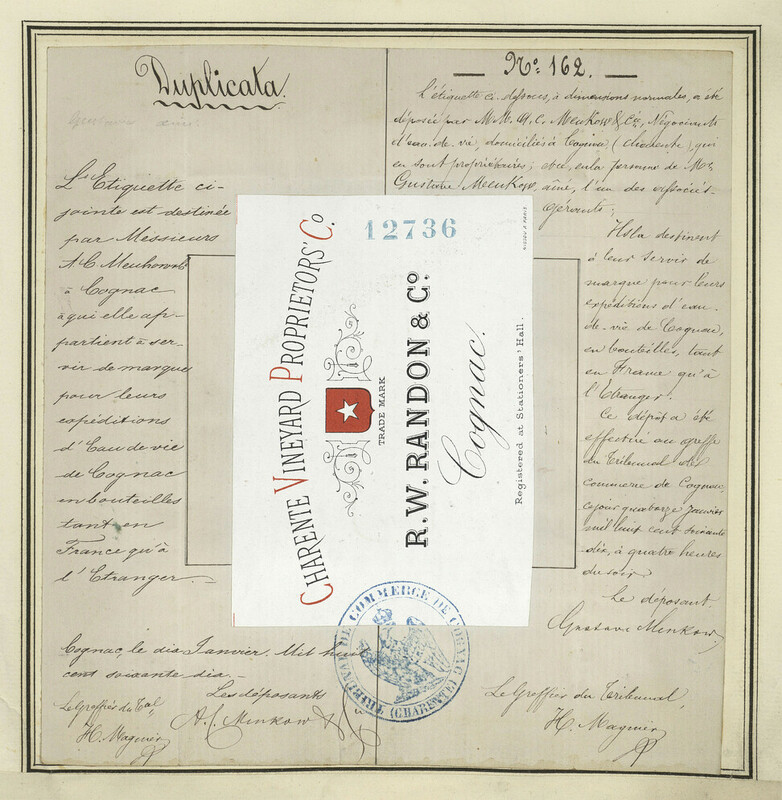 Duplicata.
L'Etiquette ci-
jointe est destinée
par Messieurs
A. C. Meukow &
à Cognac
à qui elle ap-
partient à ser-
vir de marque
pour leurs
expéditions
d'Eau de vie
de Cognac
en bouteilles
tant en
France qu'à
l'Etranger.
Cognac, le dix Janvier, Mil huit
cent soixante dix.
Les déposants
A. C. Meukow &
Le Greffier du Tal,
H. Magnier
No. 162.
L'étiquette ci-dessous, à dimensions normales, a été
déposée par M.M. A.C. Meukow & Cie, Négociants
d'eau-de-vie, domiciliés à Cognac (Charente), qui
en sont propriétaires; et ce, en la personne de Mr.
Gustave Meukow, ainé, l'un des associés-
gérants;
Ils la destinent
à leur servir de
marque pour leurs
expéditions d'eau-
de-vie de Cognac,
en bouteilles, tant
en France qu'à
l'Etranger.
Ce dépôt a été
effectué au greffe
du Tribunal de
Commerce de Cognac,
ce jour quatorze Janvier
mil huit cent soixante
dix, à quatre heures
du soir.
Le déposant.
Gustave Meukow
Le Greffier du Tribunal,
H. Magnier
12736
CHARENTE VINEYARD PROPRIETORS' Co.
TRADE MARK
R.W. RANDON & Co.
Cognac.
Registered at Stationers' Hall.
TRIBUNAL DE COMMERCE DE COGNAC
(CHARENTE)